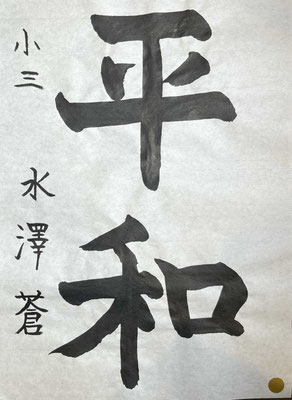 平和
小三 水澤蒼